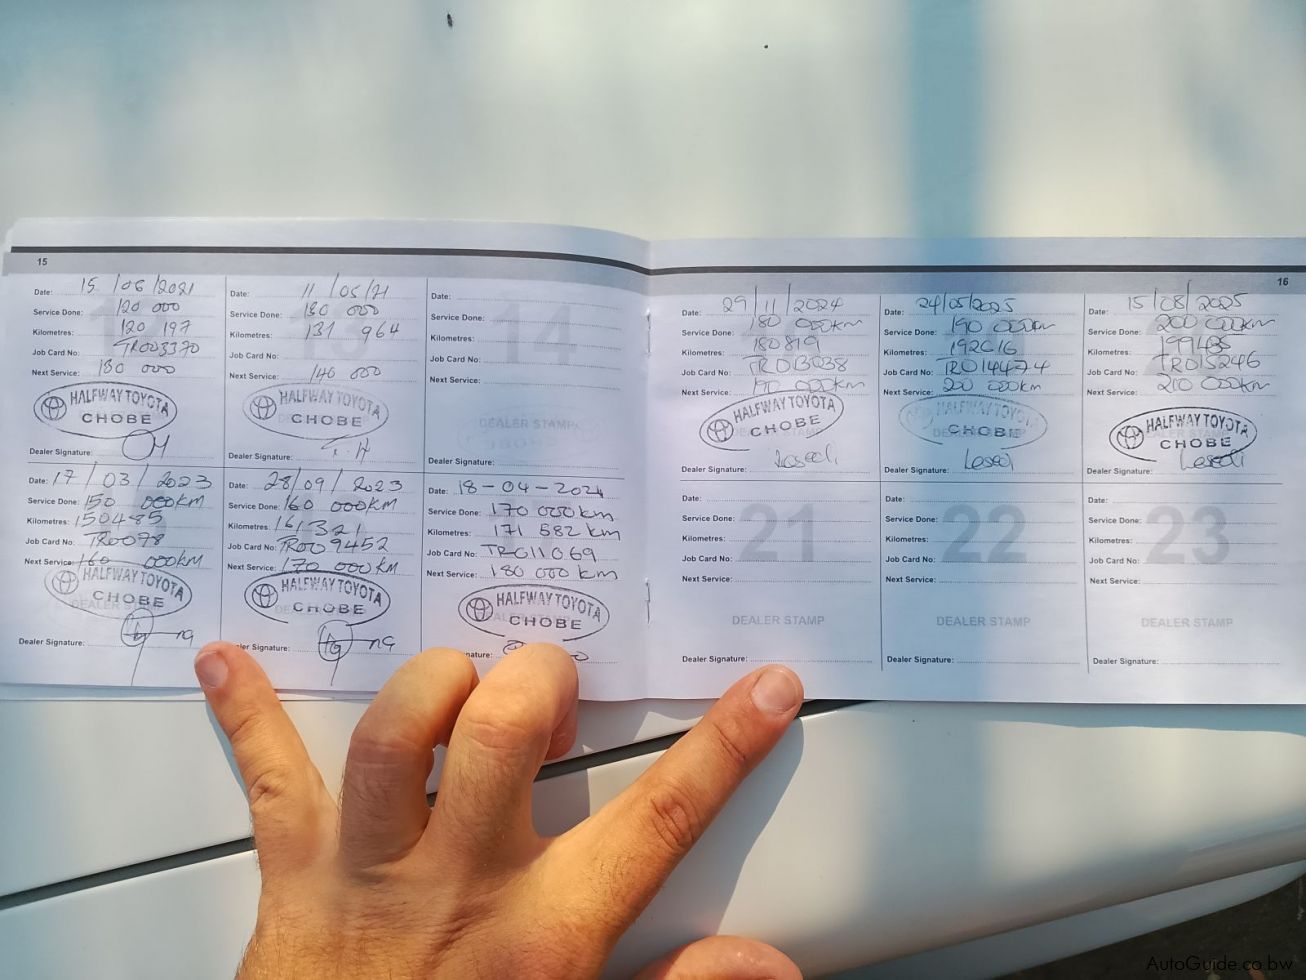 15
Date: 15/06/2021
Service Done: 120 000
Kilometres: 120 197
Job Card No: TR003370
Next Service: 130 000
HALFWAY TOYOTA
CHOBE
Dealer Signature:
Date: 11/05/21
Service Done: 130 000
Kilometres: 131 964
Job Card No:
Next Service: 140 000
HALFWAY TOYOTA
CHOBE
Dealer Signature:
14
Date:
Service Done:
Kilometres:
Job Card No:
Next Service:
DEALER STAMP
Dealer Signature:
Date: 17/03/2023
Service Done: 150 000KM
Kilometres: 150485
Job Card No: TR0078
Next Service: 160 000KM
HALFWAY TOYOTA
CHOBE
Dealer Signature:
Date: 28/09/2023
Service Done: 160 000KM
Kilometres: 161321
Job Card No: TR009452
Next Service: 170 000KM
HALFWAY TOYOTA
CHOBE
Signature:
Date: 18-04-2024
Service Done: 170 000 KM
Kilometres: 171 582 KM
Job Card No: TR011069
Next Service: 180 000 KM
HALFWAY TOYOTA
CHOBE
16
Date: 29/11/2024
Service Done: 180 000km
Kilometres: 180819
Job Card No: TR013038
Next Service: 190 000km
HALFWAY TOYOTA
CHOBE
Dealer Signature: Lesedi
Date: 24/05/2025
Service Done: 190 000km
Kilometres: 192616
Job Card No: TR014474
Next Service: 200 000km
HALFWAY TOYOTA
CHOBE
Dealer Signature: Lesedi
Date: 15/08/2025
Service Done: 200 000km
Kilometres: 199485
Job Card No: TR015246
Next Service: 210 000km
HALFWAY TOYOTA
CHOBE
Dealer Signature: Lesedi
21
Date:
Service Done:
Kilometres:
Job Card No:
Next Service:
DEALER STAMP
Dealer Signature:
22
Date:
Service Done:
Kilometres:
Job Card No:
Next Service:
DEALER STAMP
Dealer Signature:
23
Date:
Service Done:
Kilometres:
Job Card No:
Next Service:
DEALER STAMP
Dealer Signature:
AutoGuide.co.bw